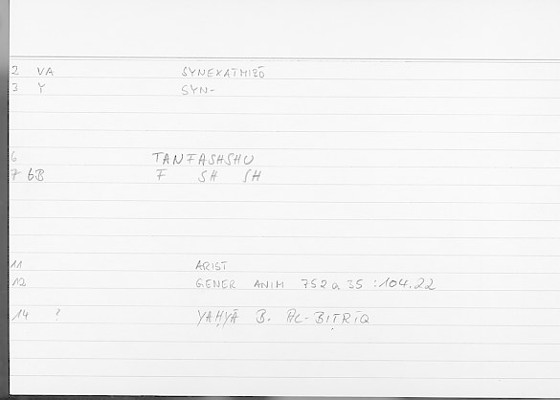 2 VA SYNEXATMIZŌ
3 Y SYN-
6 TANFASHSHU
7 6B F SH SH
11 ARIST
12 GENER ANIM 752 a 35 : 104.22
14 ? YAḤYĀ B. AL-BIṬRĪQ